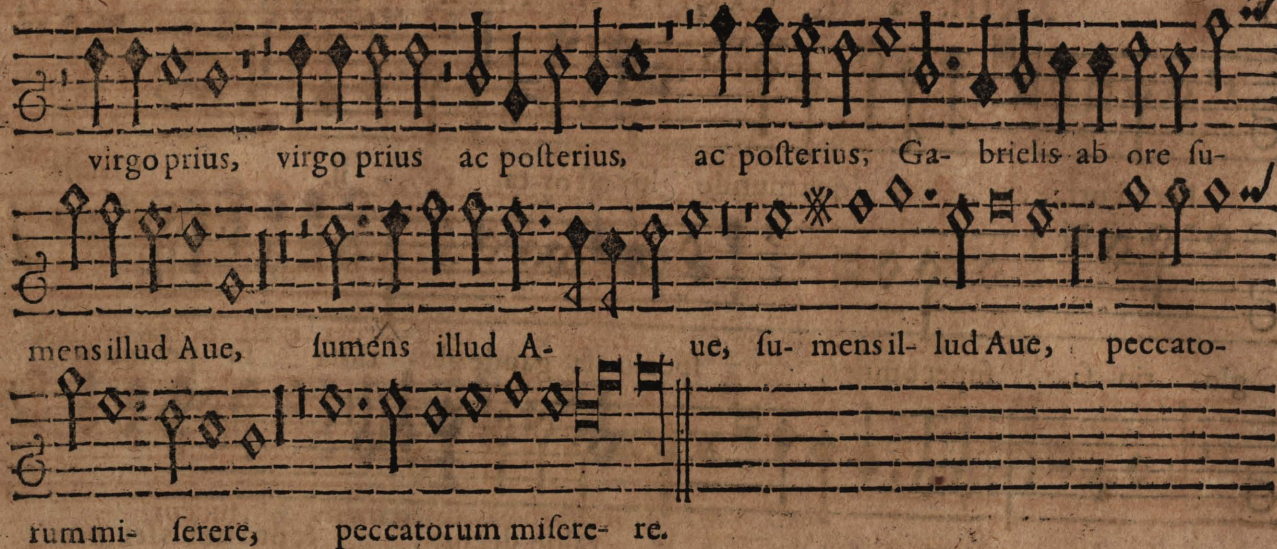 virgo prius, virgo prius ac poſterius, ac poſterius, Ga- brielis ab ore ſu-
mens illud Aue, ſumens illud A- ue, ſu- mens il- lud Aue, peccato-
rum mi- ſerere, peccatorum miſere- re.